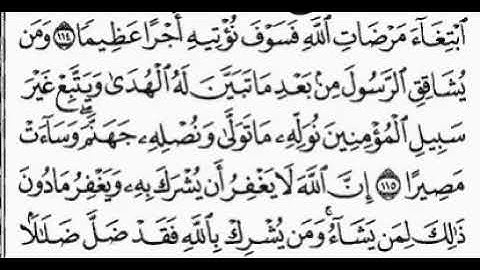 ٱبْتِغَآءَ مَرْضَاتِ ٱللَّهِ فَسَوْفَ نُؤْتِيهِ أَجْرًا عَظِيمًا ١١٤ وَمَن
يُشَاقِقِ ٱلرَّسُولَ مِنۢ بَعْدِ مَا تَبَيَّنَ لَهُ ٱلْهُدَىٰ وَيَتَّبِعْ غَيْرَ
سَبِيلِ ٱلْمُؤْمِنِينَ نُوَلِّهِۦ مَا تَوَلَّىٰ وَنُصْلِهِۦ جَهَنَّمَ ۖ وَسَآءَتْ
مَصِيرًا ١١٥ إِنَّ ٱللَّهَ لَا يَغْفِرُ أَن يُشْرَكَ بِهِۦ وَيَغْفِرُ مَا دُونَ
ذَٰلِكَ لِمَن يَشَآءُ ۚ وَمَن يُشْرِكْ بِٱللَّهِ فَقَدْ ضَلَّ ضَلَٰلًۢا